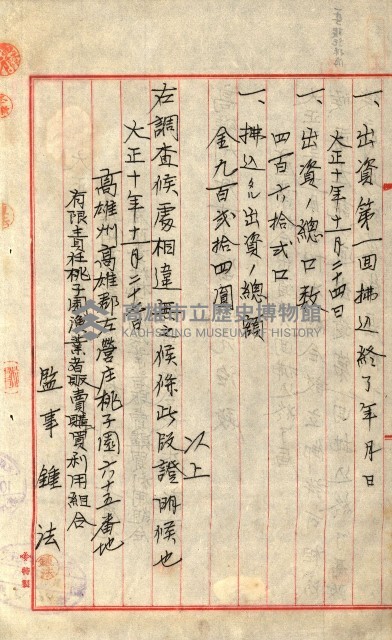 一、出資第一回拂込終了年月日
大正十年十一月二十四日
一、出資ノ總口数
四百六拾弐口
一、拂込タル出資ノ總額
金九百弐拾四圓
以上
右調査候處相違無之候條此段證明候也
大正十年十一月二十日
高雄州高雄郡左營庄桃子園六十五番地
有限責任桃子園漁業者販賣購買利用組合
監事 鍾法
高雄市立歷史博物館
KAOHSIUNG MUSEUM OF HISTORY
特製